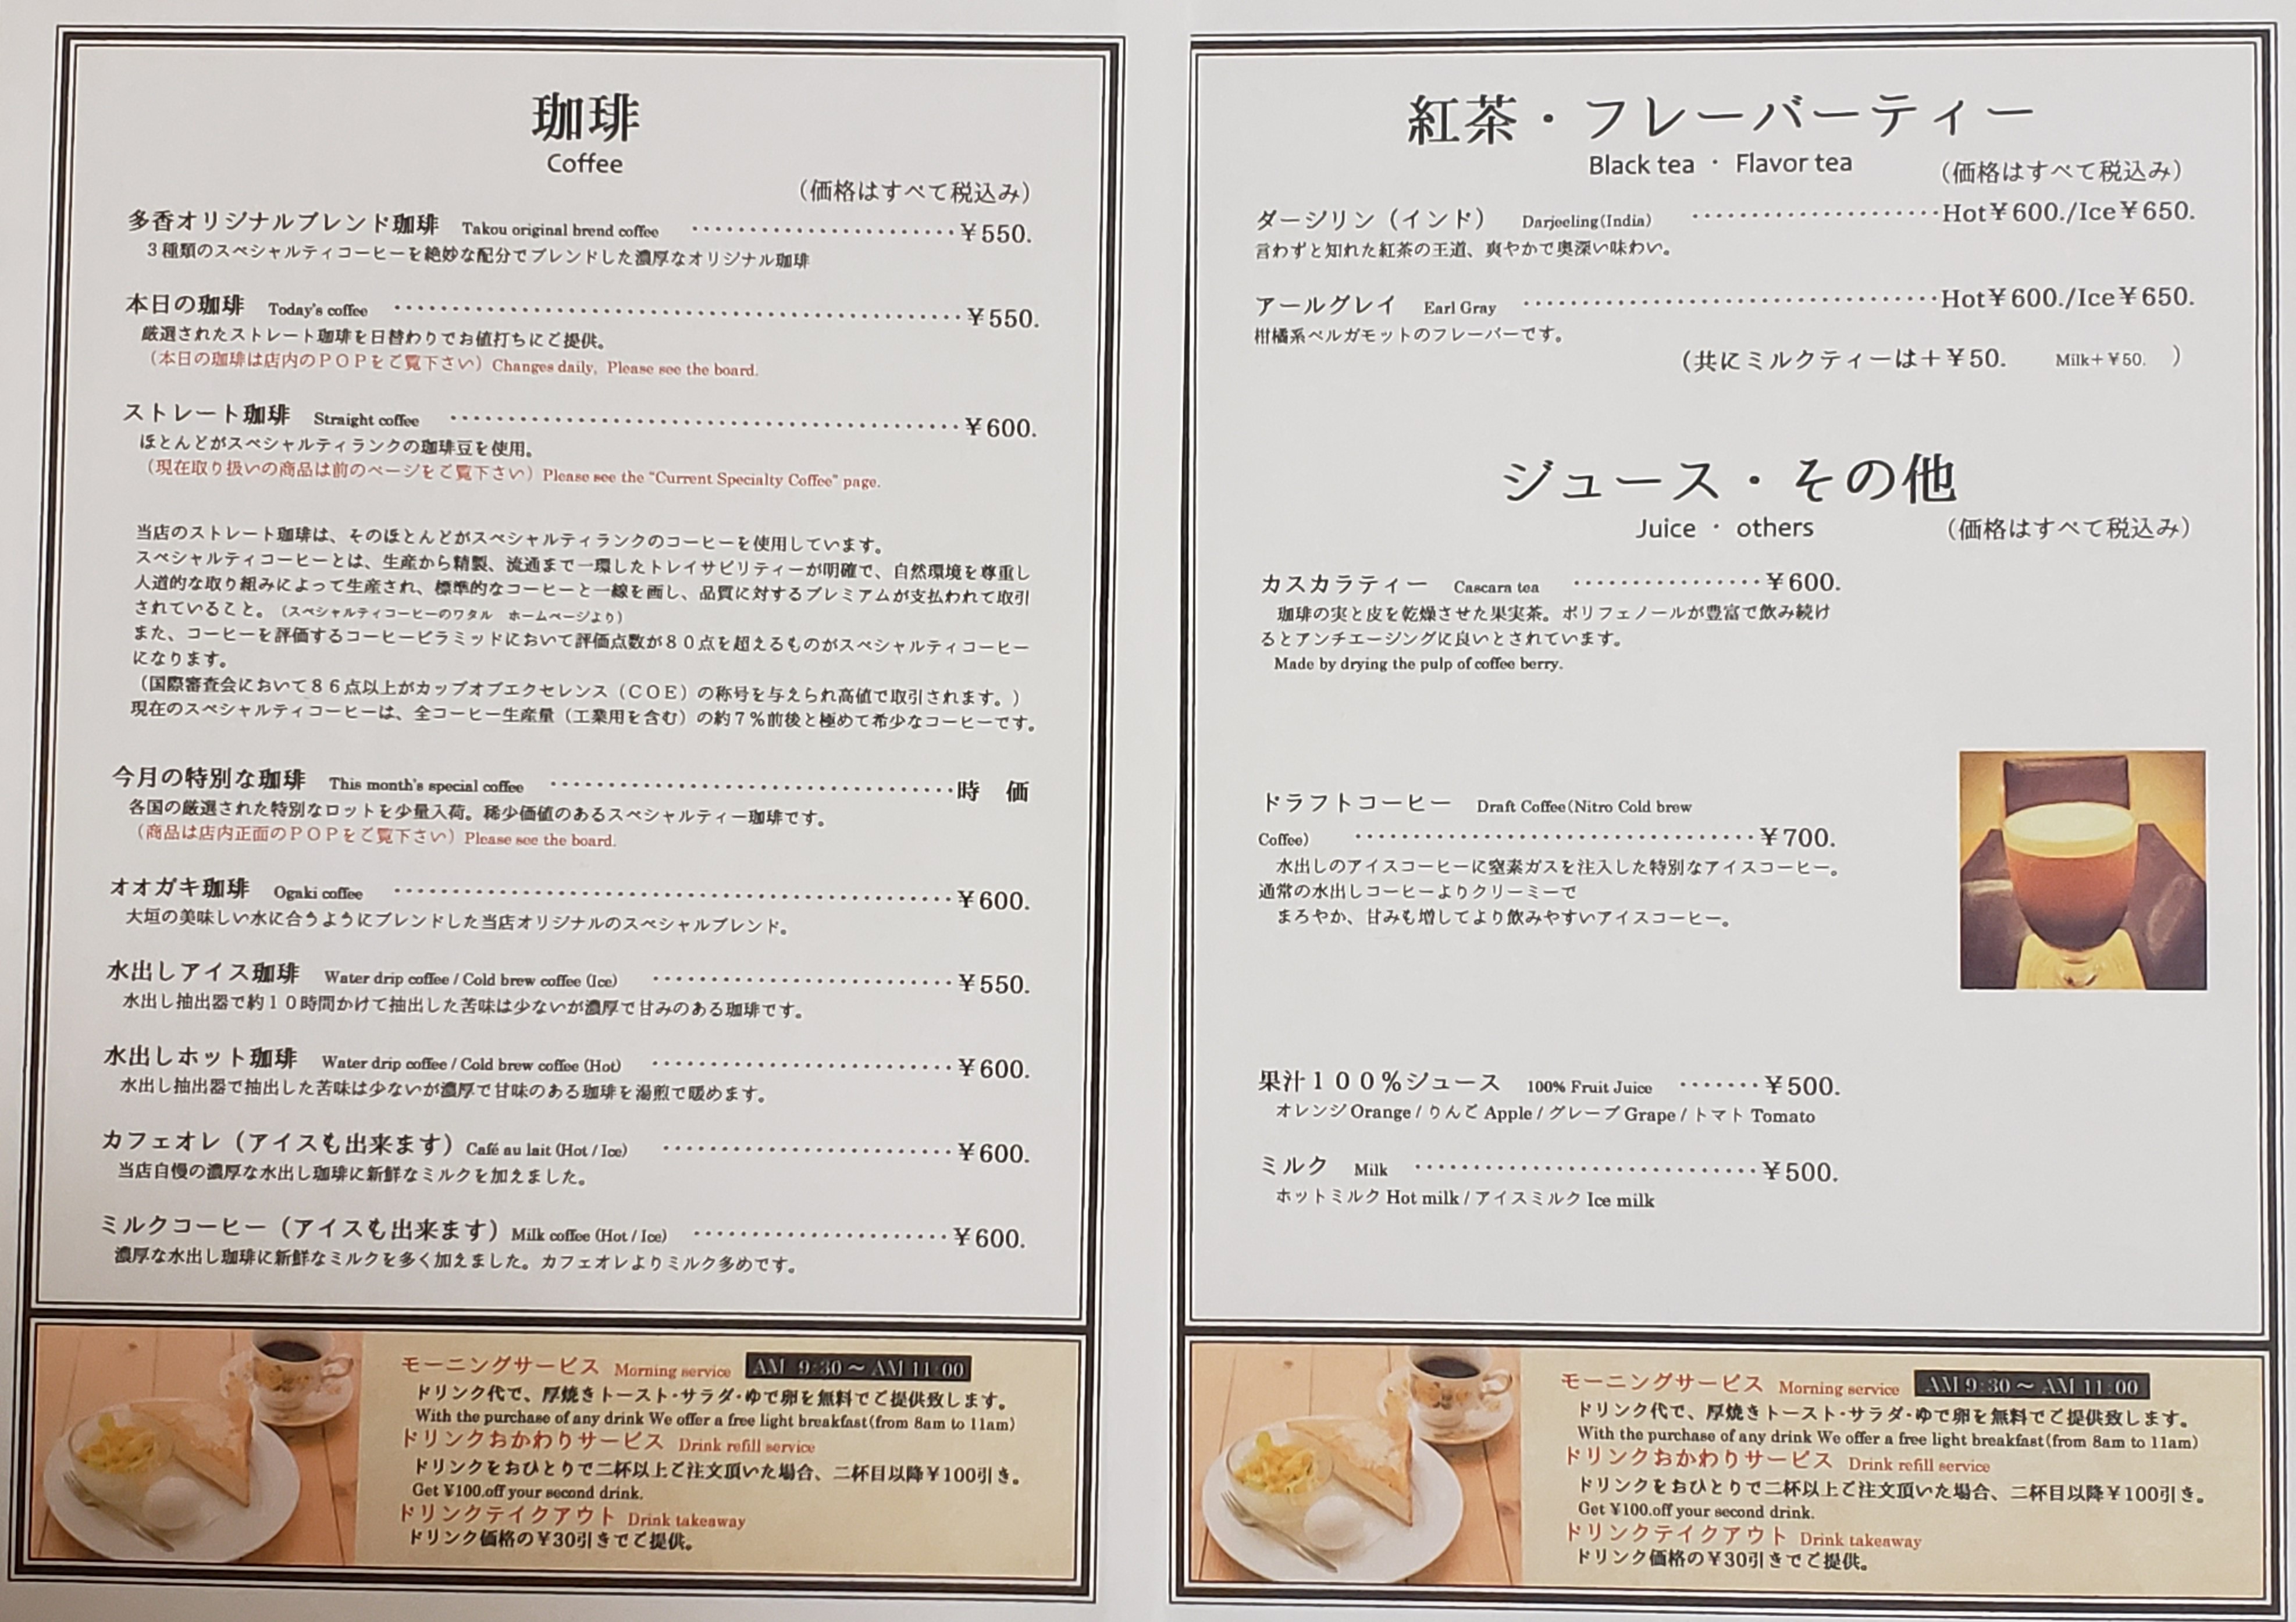 珈琲
Coffee
（価格はすべて税込み）
多香オリジナルブレンド珈琲 Takou original brend coffee ······················¥550.
３種類のスペシャルティコーヒーを絶妙な配分でブレンドした濃厚なオリジナル珈琲
本日の珈琲 Today's coffee ················································¥550.
厳選されたストレート珈琲を日替わりでお値打ちにご提供。
（本日の珈琲は店内のＰＯＰをご覧下さい）Changes daily, Please see the board.
ストレート珈琲 Straight coffee ············································¥600.
ほとんどがスペシャルティランクの珈琲豆を使用。
（現在取り扱いの商品は前のページをご覧下さい）Please see the “Current Specialty Coffee” page.
当店のストレート珈琲は、そのほとんどがスペシャルティランクのコーヒーを使用しています。
スペシャルティコーヒーとは、生産から精製、流通まで一環したトレイサビリティーが明確で、自然環境を尊重し
人道的な取り組みによって生産され、標準的なコーヒーと一線を画し、品質に対するプレミアムが支払われて取引
されていること。（スペシャルティコーヒーのワタル　ホームページより）
また、コーヒーを評価するコーヒーピラミッドにおいて評価点数が８０点を超えるものがスペシャルティコーヒー
になります。
（国際審査会において８６点以上がカップオブエクセレンス（ＣＯＥ）の称号を与えられ高値で取引されます。）
現在のスペシャルティコーヒーは、全コーヒー生産量（工業用を含む）の約７％前後と極めて希少なコーヒーです。
今月の特別な珈琲 This month's special coffee ··································時　価
各国の厳選された特別なロットを少量入荷。稀少価値のあるスペシャルティー珈琲です。
（商品は店内正面のＰＯＰをご覧下さい）Please see the board.
オオガキ珈琲 Ogaki coffee ················································¥600.
大垣の美味しい水に合うようにブレンドした当店オリジナルのスペシャルブレンド。
水出しアイス珈琲 Water drip coffee / Cold brew coffee (Ice) ··························¥550.
水出し抽出器で約１０時間かけて抽出した苦味は少ないが濃厚で甘みのある珈琲です。
水出しホット珈琲 Water drip coffee / Cold brew coffee (Hot) ··························¥600.
水出し抽出器で抽出した苦味は少ないが濃厚で甘味のある珈琲を湯煎で暖めます。
カフェオレ（アイスも出来ます）Café au lait (Hot / Ice) ·························¥600.
当店自慢の濃厚な水出し珈琲に新鮮なミルクを加えました。
ミルクコーヒー（アイスも出来ます）Milk coffee (Hot / Ice) ······················¥600.
濃厚な水出し珈琲に新鮮なミルクを多く加えました。カフェオレよりミルク多めです。
モーニングサービス Morning service AM 9:30～AM 11:00
ドリンク代で、厚焼きトースト･サラダ･ゆで卵を無料でご提供致します。
With the purchase of any drink We offer a free light breakfast(from 8am to 11am)
ドリンクおかわりサービス Drink refill service
ドリンクをおひとりで二杯以上ご注文頂いた場合、二杯目以降¥100引き。
Get ¥100.off your second drink.
ドリンクテイクアウト Drink takeaway
ドリンク価格の¥30引きでご提供。
紅茶・フレーバーティー
Black tea ・ Flavor tea （価格はすべて税込み）
ダージリン（インド） Darjeeling(India) ·····················Hot¥600./Ice¥650.
言わずと知れた紅茶の王道、爽やかで奥深い味わい。
アールグレイ Earl Gray ···································Hot¥600./Ice¥650.
柑橘系ベルガモットのフレーバーです。
（共にミルクティーは＋¥50. Milk＋¥50. ）
ジュース・その他
Juice ・ others （価格はすべて税込み）
カスカラティー Cascara tea ················¥600.
珈琲の実と皮を乾燥させた果実茶。ポリフェノールが豊富で飲み続け
るとアンチエージングに良いとされています。
Made by drying the pulp of coffee berry.
ドラフトコーヒー Draft Coffee(Nitro Cold brew
Coffee) ··································¥700.
水出しのアイスコーヒーに窒素ガスを注入した特別なアイスコーヒー。
通常の水出しコーヒーよりクリーミーで
まろやか、甘みも増してより飲みやすいアイスコーヒー。
果汁１００％ジュース 100% Fruit Juice ·······¥500.
オレンジ Orange / りんご Apple / グレープ Grape / トマト Tomato
ミルク Milk ·····························¥500.
ホットミルク Hot milk / アイスミルク Ice milk
モーニングサービス Morning service AM 9:30～AM 11:00
ドリンク代で、厚焼きトースト･サラダ･ゆで卵を無料でご提供致します。
With the purchase of any drink We offer a free light breakfast(from 8am to 11am)
ドリンクおかわりサービス Drink refill service
ドリンクをおひとりで二杯以上ご注文頂いた場合、二杯目以降¥100引き。
Get ¥100.off your second drink.
ドリンクテイクアウト Drink takeaway
ドリンク価格の¥30引きでご提供。